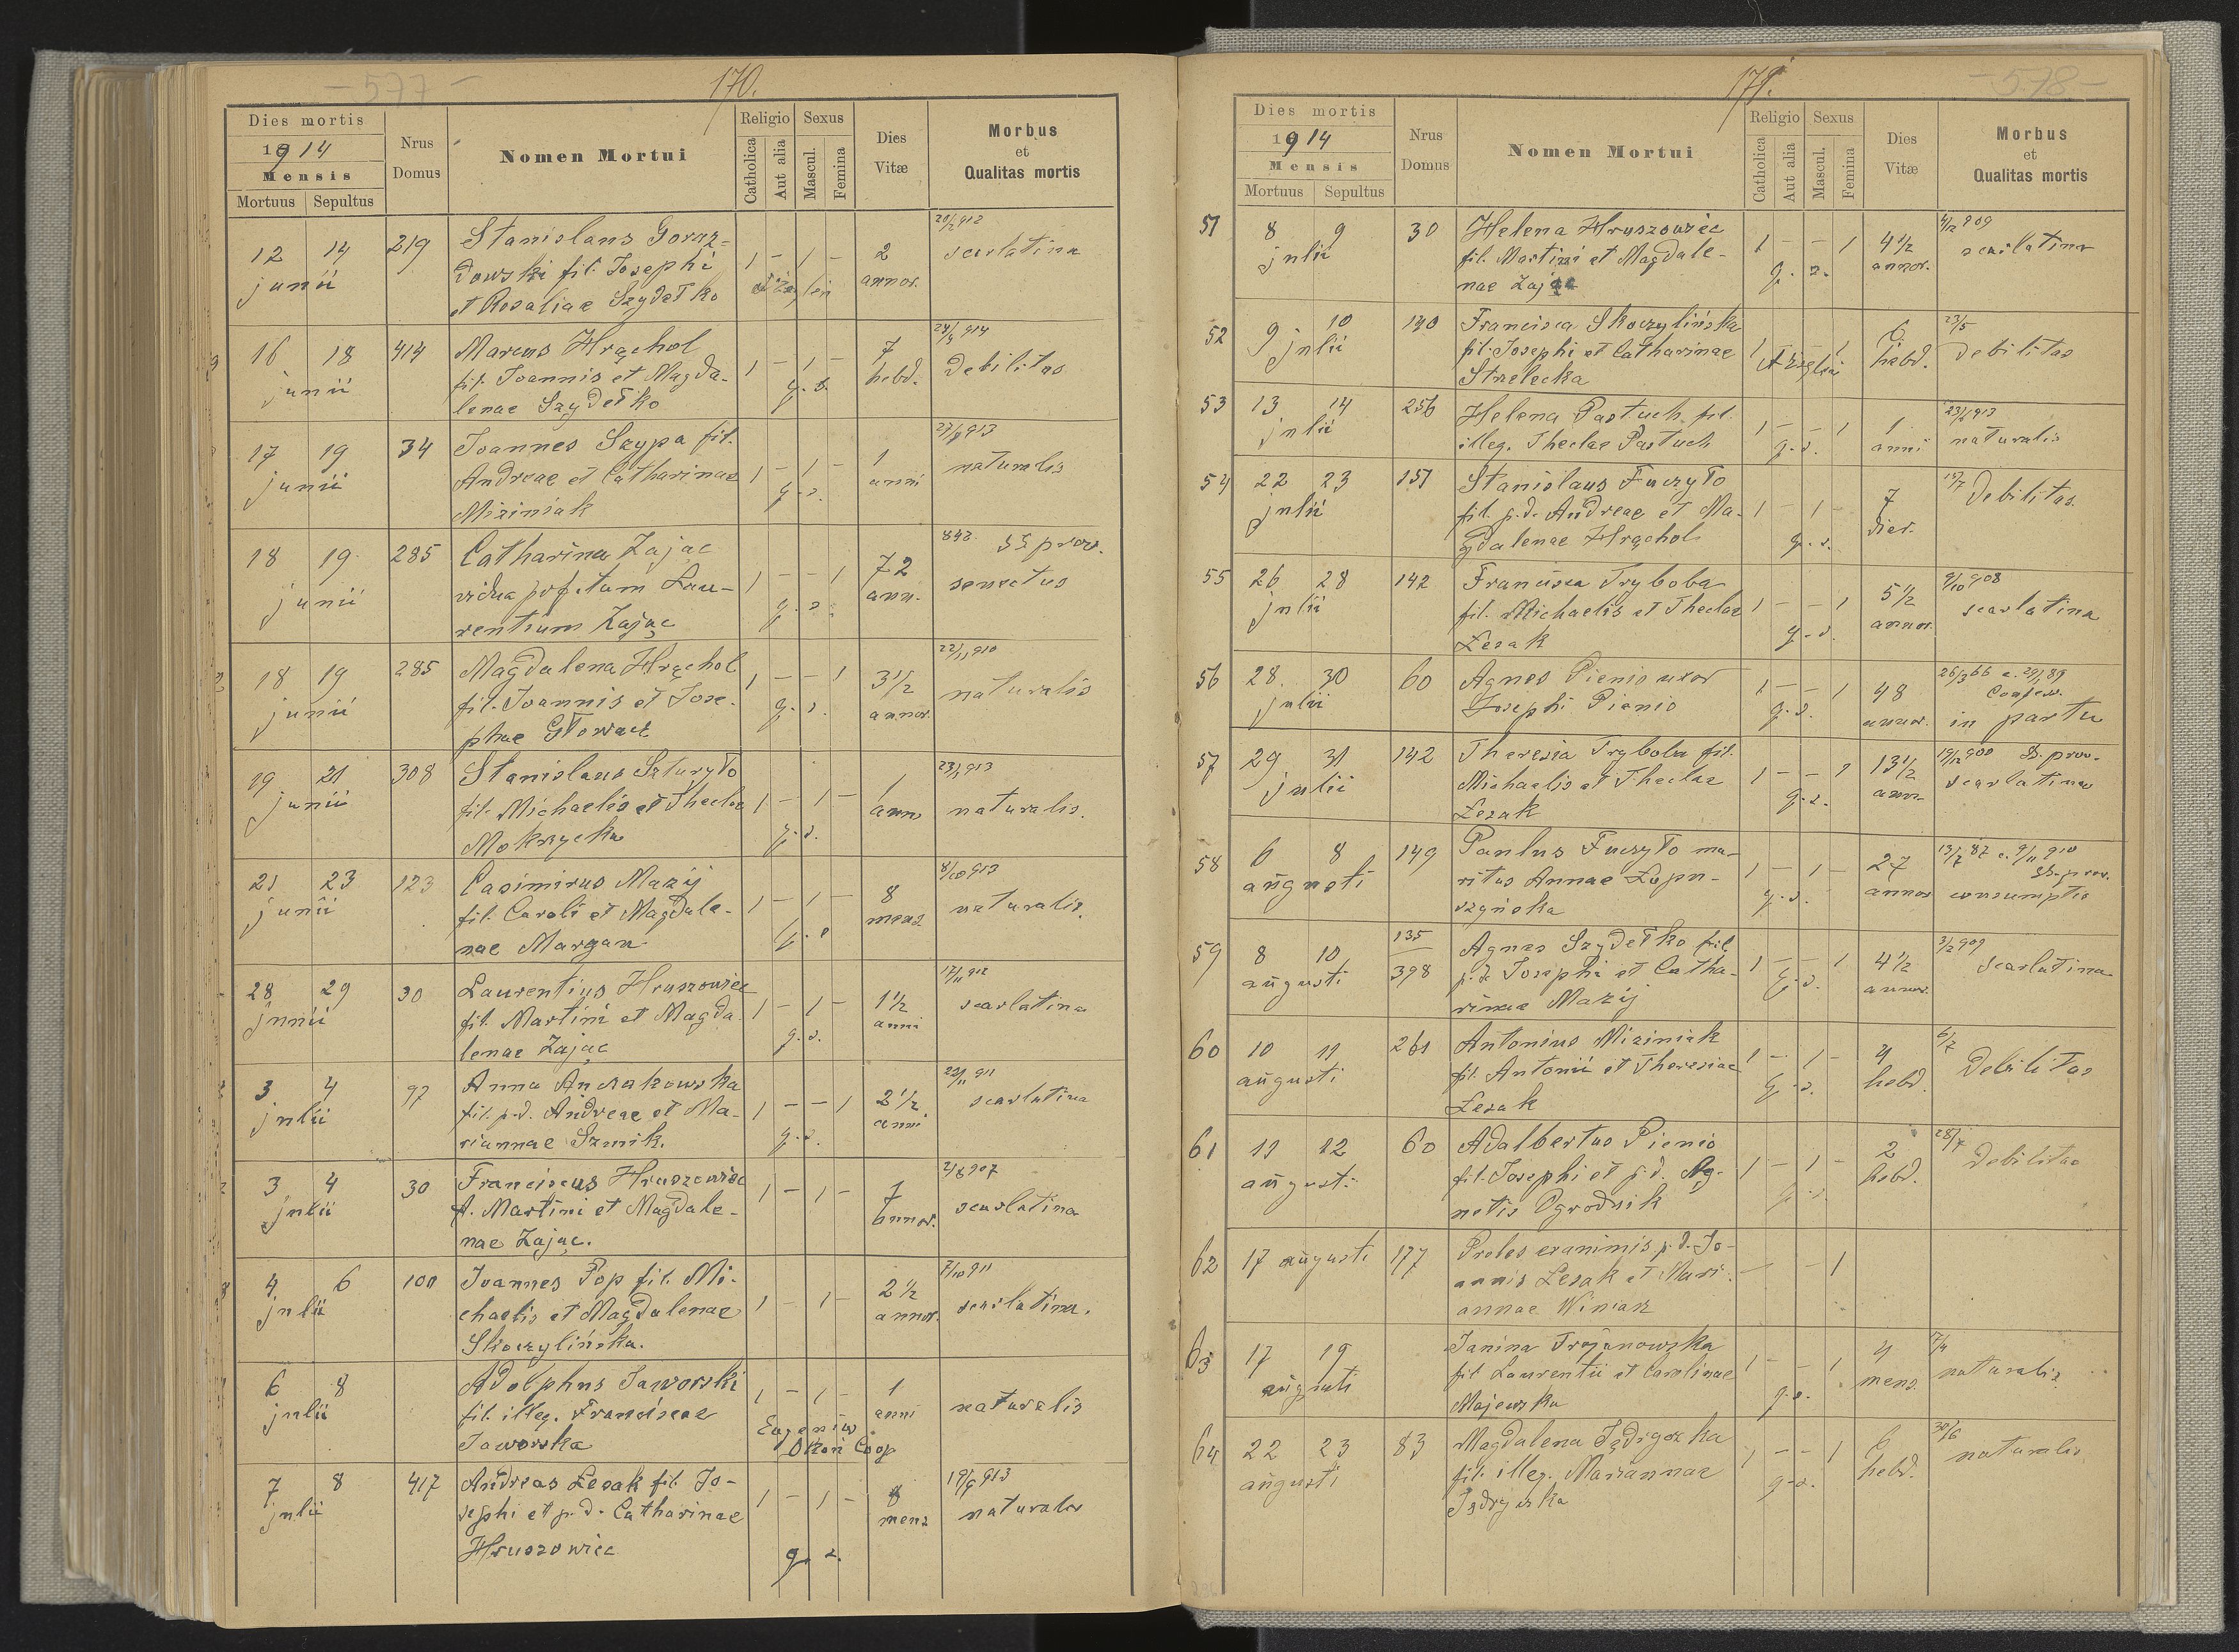 - 577 -
170.
Dies mortis
1914
Mensis
Mortuus Sepultus
Nrus Domus
Nomen Mortui
Religio
Catholica
Aut alia
Sexus
Mascul.
Femina
Dies Vitæ
Morbus
et
Qualitas mortis
12 14 219 Stanislaus Goraz- 2 scarlatina
junii dowski fil. Josephi 1 - 1 - annor.
et Rosaliae Szydełko
16 18 414 Marcus Hrąchol 7 debilitas
junii fil. Joannis et Magda- 1 - 1 - hebd.
lenae Szydełko g. s.
17 19 34 Joannes Szypa fil. 1 naturalis
junii Andreae et Catharinae 1 - 1 - anni
Misiniak g. s.
18 19 285 Catharina Zając 842 SS prov.
junii vidua post Lau- 1 - - 1 72 senectus
rentium Zając g. s. ann.
18 19 285 Magdalena Hrąchol 22/11 910
junii fil. Joannis et Jose- 1 - - 1 3 1/2 naturalis
phae Głowacz g. s. annor.
19 21 308 Stanislaus Szturyło 1 naturalis.
junii fil. Michaelis et Theclae 1 - 1 - ann
Mokrzycka g. s.
21 23 123 Casimirus Mazij 8/10 913
junii fil. Caroli et Magdale- 1 - 1 - 8 naturalis.
nae Margan mens.
28 29 30 Laurentius Hruszowiec 17/11 912
junii fil. Martini et Magda- 1 - 1 - 1 1/2 scarlatina
lenae Zając g. s. anni
3 4 97 Anna Andrakowska 22/11 911
julii fil. p.d. Andreae et Ma- 1 - - 1 2 1/2 scarlatina
riannae Szmik. g. s. anni
3 4 30 Franciscus Hruszowiec 907
julii f. Martini et Magdale- 1 - 1 - 7 scarlatina
nae Zając. annor.
4 6 100 Joannes Pop fil. Mi- 7/10 911
julii chaelis et Magdalenae 1 - 1 - 2 1/2 scarlatina.
Skoczylińska. annor.
6 8 Adolphus Jaworski 1 - 1 - 1
julii fil. illeg. Franciscae anni naturalis
Jaworska Eugenius Coop
7 8 417 Andreas Lesak fil. Jo- 913
julii sephi et p.d. Catharinae 1 - 1 - 8 naturalis
Hruszowiec g. s. mens
- 578 -
171.
Dies mortis
1914
Mensis
Mortuus Sepultus
Nrus Domus
Nomen Mortui
Religio
Catholica
Aut alia
Sexus
Mascul.
Femina
Dies Vitæ
Morbus
et
Qualitas mortis
51 8 9 30 Helena Hruszowiec 4/12 909
julii fil. Martini et Magdale- 1 - - 1 4 1/2 scarlatina
nae Zając g. s. annor.
52 9 10 190 Francisca Skoczylińska 23/5
julii fil. Josephi et Catharinae 1 - - 1 6 debilitas
Strzelecka hebd.
53 13 14 256 Helena Pastuch fil. 23/6 913
julii illeg. Theclae Pastuch 1 - - 1 1 naturalis
g. s. anni
54 22 23 151 Stanislaus Fuczyło 15/7 debilitas.
julii fil. p.d. Andreae et Ma- 1 - 1 - 7
gdalenae Hrąchol g. s. dier.
55 26 28 142 Francisca Tryboba 9/10 908
julii fil. Michaelis et Theclae 1 - - 1 5 1/2 scarlatina
Lesak g. s. annor.
56 28 30 60 Agnes Pienio uxor 26/3 66 c. 29/1 89
julii Josephi Pienio 1 - - 1 48 Confess.
g. s. annor. in partu
57 29 31 142 Theresia Tryboba fil. 19/12 900 SS. prov.
julii Michaelis et Theclae 1 - - 1 13 1/2 scarlatina
Lesak g. s. ann.
58 6 8 149 Paulus Fuczyło ma- 13/7 87 c. 9/11 910
augusti ritus Annae Łopu- 1 - 1 - 27 SS. prov.
szyńska g. s. annor consumptio
59 8 10 135 Agnes Szydełko fil. 3/2 909
augusti 398 p.d. Josephi et Catha- 1 - - 1 4 1/2 scarlatina
rinae Mazij g. s. annor.
60 10 11 261 Antonius Misiniak 6/7
augusti fil. Antonii et Theresiae 1 - 1 - 4 debilitas
Lesak g. s. hebd.
61 11 12 60 Adalbertus Pienio 28/7
augusti fil. Josephi et p.d. Ag- 1 - 1 - 2 debilitas
netis Ogrodnik hebd.
62 17 augusti 177 Proles exanimis p.d. Jo-
annis Lesak et Mari- - - 1
annae Winiarz
63 17 19 Janina Trojanowska 7/4
augusti fil Laurentii et Carolinae 1 - - 1 4 naturalis
Majewska g. s. mens.
64 22 23 83 Magdalena 30/6
augusti fil. illeg. Mariannae 1 - - 1 6 naturalis
g. s. hebd.